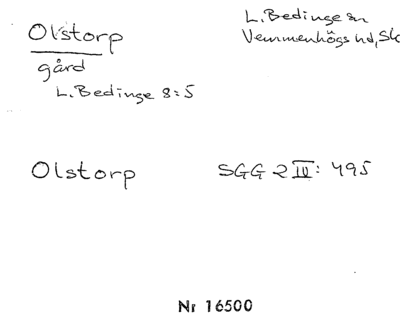 Olstorp
L. Bedinge sn
Vemmenhögs hd, Sk
gård
L. Bedinge 8:5
Olstorp SGG 2 IV: 495
Nr 16500